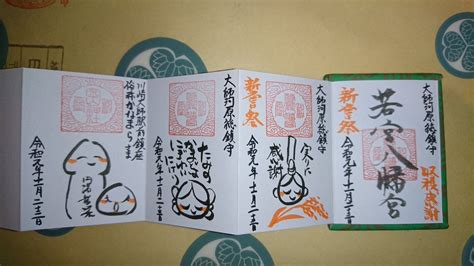 大師河原総鎮守
収穫感謝
若宮八幡宮
新嘗祭
令和元年十一月二十三日
大師河原総鎮守
実りに
感謝
新嘗祭
令和元年十一月二十三日
大師河原総鎮守
令和元年十一月二十三日
川崎大師駅前鎮座
俗称かなまらさま
令和元年十一月二十三日